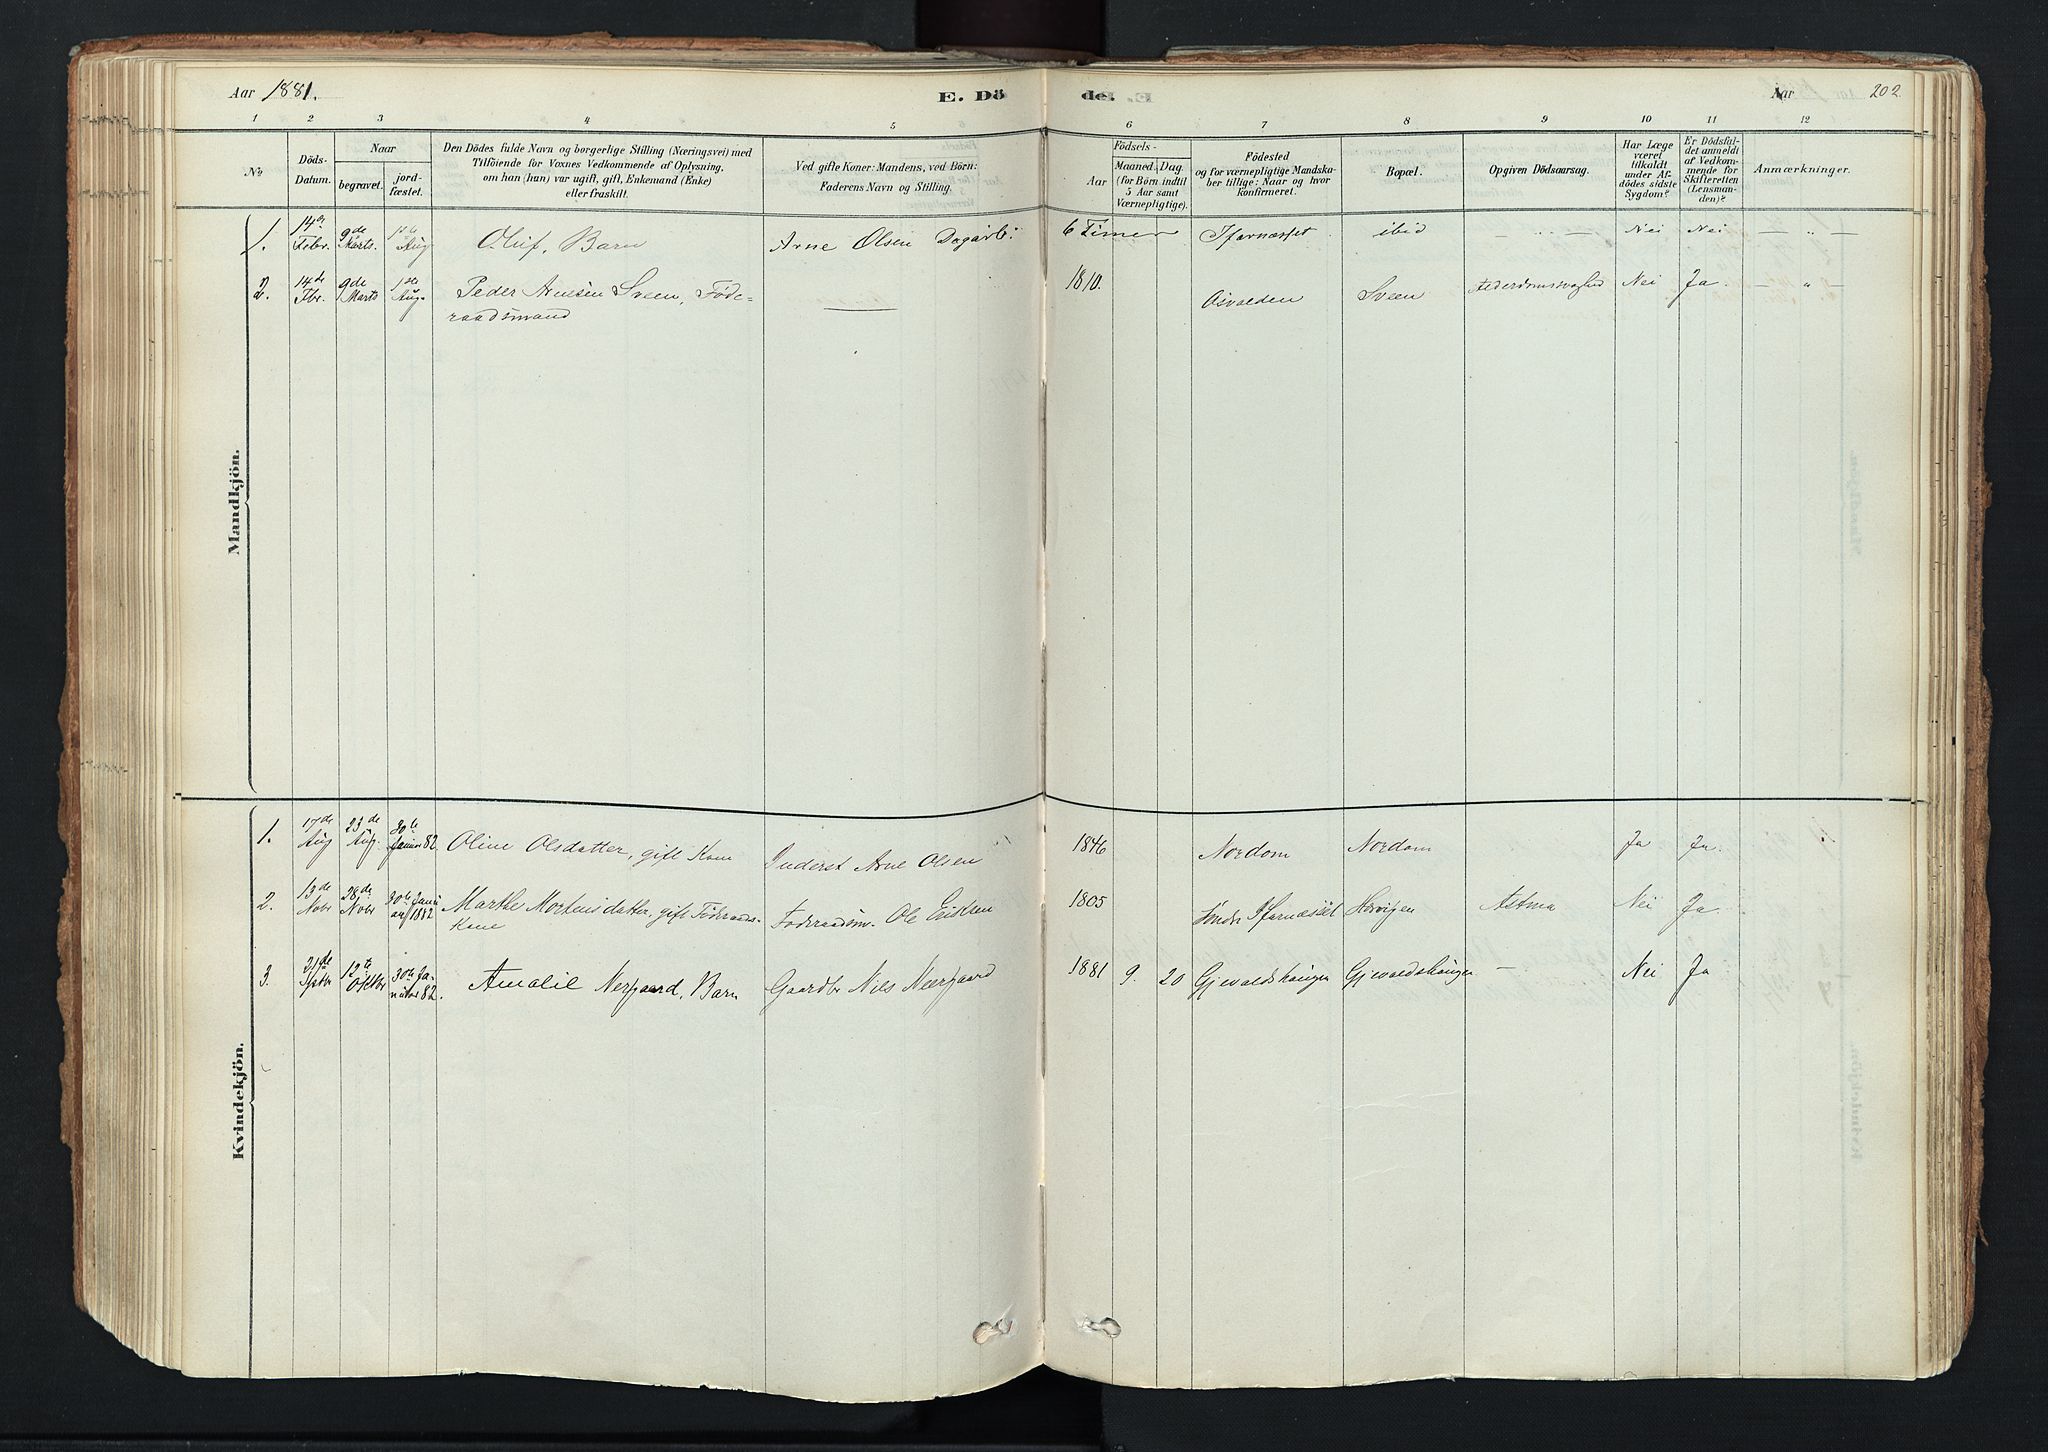 Aar 1881.
E. Dö
de.
Aar 202
1 2 3 4 5 6 7 8 9 10 11 12
No
Döds-
Datum.
Naar
begravet.
jord-
fæstet.
Den Dödes fulde Navn og borgerlige Stilling (Næringsvei) med
Tilföiende for Voxnes Vedkommende af Oplysning,
om han (hun) var ugift, gift, Enkemand (Enke)
eller fraskilt.
Ved gifte Koner: Mandens, ved Börn:
Faderens Navn og Stilling.
Födsels-
Aar
Maaned. Dag.
(for Börn indtil
5 Aar samt
Værnepligtige).
Födested
og for værnepligtige Mandska-
ber tillige: Naar og hvor
konfirmeret.
Bopæl.
Opgiven Dödsaarsag.
Har Læge
været
tilkaldt
under Af-
dödes sidste
Sygdom?
Er Dödsfal-
det anmeldt
af Vedkom-
mende for
Skifteretten
(Lensman-
den)?
Anmærkninger.
Mandkjön.
1. 14de Febr. 9de Marts. 1ste Aug Oluf, Barn Arne Olsen 6 Timer ibid — „ — Nei Nei — „ —
2. 14de Fbr. 9de Marts 1ste Aug. Peder Arnesen Sveen, Föde- 1810. Osvolden Sveen Alderdomssvaghed Nei Ja. — „ —
raadsmand
Kvindekjön.
1. 17de Aug 23de Aug. 30te Januar 82. Oline Olsdatter, gift Kone Inderst Arne Olsen 1846 Nordom Nordom Ja Ja.
2. 13de Nobr 28de Nobr 30te Januar 1882 Marthe Mortensdatter, gift Föderaads- Föderaadsm. Ole Eriksen 1805 Astma Nei Ja.
Kone
3. 21de Sptbr 12te Oktbr 30te Januar 82. Amalie Nergaard, Barn Gaardbr Nils Nergaard 1881 9. 20 Gjevaldshaugen Gjevaldshaugen — Nei Ja